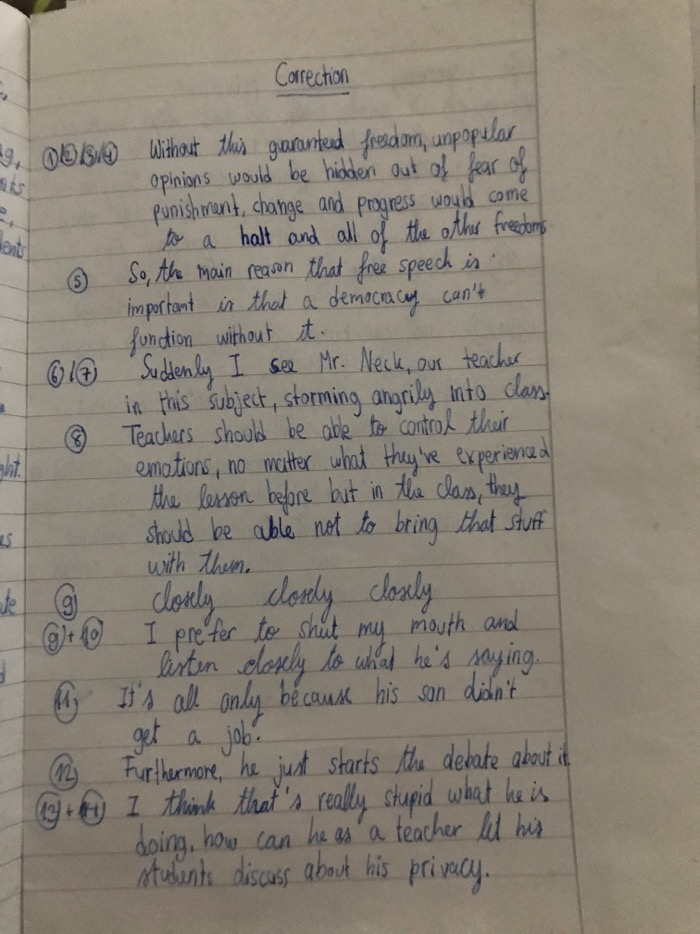 Correction
①/②/③/④ Without this guaranteed freedom, unpopular
opinions would be hidden out of fear of
punishment, change and progress would come
to a halt and all of the other freedoms
⑤ So, the main reason that free speech is
important is that a democracy can't
function without it.
⑥/⑦ Suddenly I see Mr. Neck, our teacher
in this subject, storming angrily into class.
⑧ Teachers should be able to control their
emotions, no matter what they've experienced
the lesson before but in the class, they
should be able not to bring that stuff
with them.
⑨ closely closely closely
⑨+⑩ I prefer to shut my mouth and
listen closely to what he's saying.
⑪ It's all only because his son didn't
get a job.
⑫ Furthermore, he just starts the debate about it
⑬+⑭ I think that's really stupid what he is
doing, how can he as a teacher let his
students discuss about his privacy.